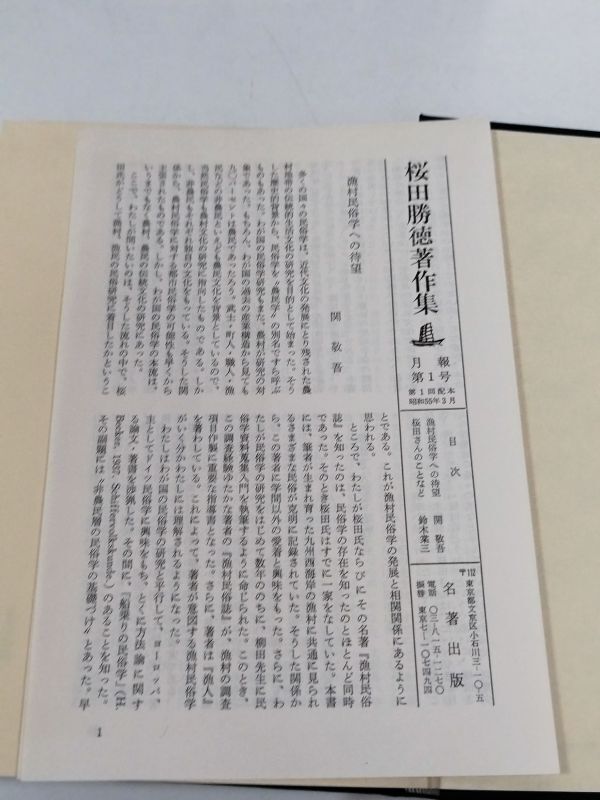 桜田勝徳著作集
月報
第1号
第1回配本
昭和55年3月
目次
漁村民俗学への待望 関敬吾
桜田さんのことなど 鈴木棠三
〒112 東京都文京区小石川三-一〇-五
名著出版
電話 〇三-八一五-一二七〇
振替 東京七-一〇七四九四
漁村民俗学への待望
関敬吾
多くの国々の民俗学は、近代文化の発展にとり残された農
村地帯の伝統的生活文化の研究を目的として始まった。そう
した歴史的背景から、民俗学を〝農民学〟の別名ですら呼ぶ
ものもあった。わが国の民俗学研究もまた、農村が研究の対
象であった。もちろん、わが国の過去の産業構造から見ても
九〇パーセントは農民であったろう。武士・町人・職人・漁
民などの非農民といえども農民文化を背景としているので、
当然民俗学も農村文化の研究に指向したものである。しか
し、非農民もそれぞれ独自の文化をもっている。そうした関
係から、農村民俗学に対する都市民俗学の可能性も早くから
主張されたものである。しかし、わが国の民俗学の本流は、
いうまでもなく農村、農民の伝統文化の研究にあった。
ところで、わたしが問いたいのは、そうした流れの中で、桜
田氏がどうして漁村、漁民の民俗研究に着目したかというこ
とである。これが漁村民俗学の発展と相関関係にあるように
思われる。
ところで、わたしが桜田氏ならびにその名著『漁村民俗
誌』を知ったのは、民俗学の存在を知ったのとほとんど同時
であった。そのとき桜田氏はすでに一家をなしていた。本書
には、筆者が生まれ育った九州西海岸の漁村に共通に見られ
るさまざまな民俗が克明に記録されていた。そうした関係か
ら、この著者に学問以外の愛着と興味をもった。さらに、わ
たしが民俗学の研究をはじめて数年ののちに、柳田先生に民
俗学資料蒐集入門を執筆するように命じられた。このとき、
この調査経験ゆたかな著者の『漁村民俗誌』が、漁村の調査
項目作製に重要な指導書となった。さらに、著者は『漁人』
を著わしている。これによって、著者が意図する漁村民俗学
がいくぶかわたしには理解されるようになった。
わたしはわが国の民俗学の研究と平行して、ヨーロッパ、
主としてドイツ民俗学に興味をもち、とくに方法論に関す
る論文・著書を渉猟した。その間に、『船乗りの民俗学』(H.
Becker, 1937, Schiffervolkskunde)のあることを知った。
その副題には〝非農民層の民俗学の基礎づけ〟とあった。早
1